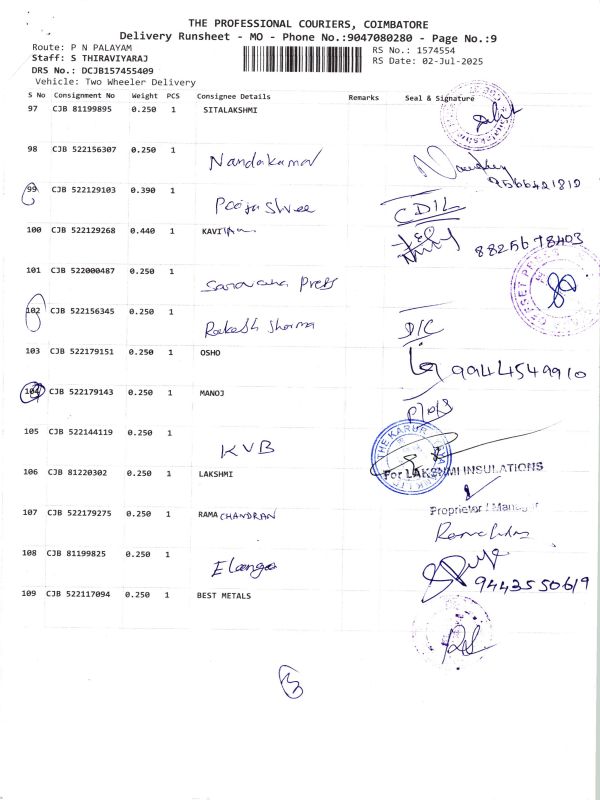 THE PROFESSIONAL COURIERS, COIMBATORE
Delivery Runsheet - MO - Phone No.:9047080280 - Page No.:9
Route: P N PALAYAM
Staff: S THIRAVIYARAJ
DRS No.: DCJB157455409
Vehicle: Two Wheeler Delivery
RS No.: 1574554
RS Date: 02-Jul-2025
S No Consignment No Weight PCS Consignee Details Remarks Seal & Signature
97 CJB 81199895 0.250 1 SITALAKSHMI
98 CJB 522156307 0.250 1 Nandakumar
9566421812
99 CJB 522129103 0.390 1 Pooja Shree CDIL
100 CJB 522129268 0.440 1 KAVI 8825678403
101 CJB 522000487 0.250 1 Saravana Press
OFFSET PRESS
102 CJB 522156345 0.250 1 Rakesh Sharma D/C
103 CJB 522179151 0.250 1 OSHO 9944549910
104 CJB 522179143 0.250 1 MANOJ
105 CJB 522144119 0.250 1 KVB
THE KARUR
106 CJB 81220302 0.250 1 LAKSHMI For LAKSHMI INSULATIONS
Proprietor / Manager
107 CJB 522179275 0.250 1 RAMA CHANDRAN
108 CJB 81199825 0.250 1 Elango 9443550619
109 CJB 522117094 0.250 1 BEST METALS